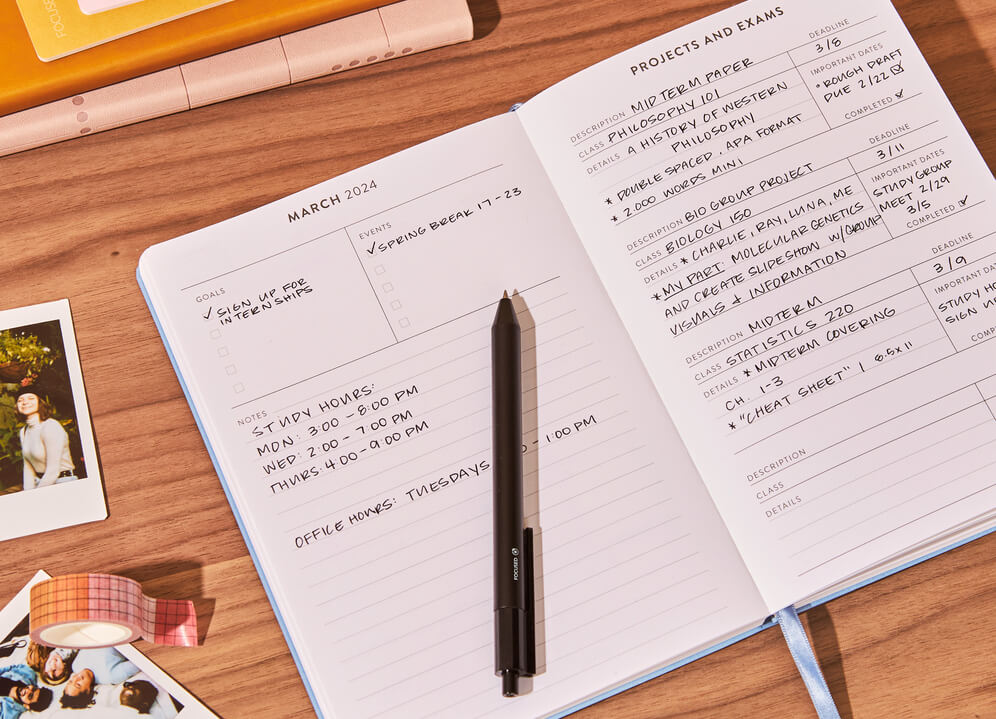 FOCUSED
MARCH 2024
GOALS
SIGN UP FOR
INTERNSHIPS
EVENTS
SPRING BREAK 17-23
NOTES
STUDY HOURS:
MON: 3:00-8:00 PM
WED: 2:00-7:00 PM
THURS: 4:00-9:00 PM
OFFICE HOURS: TUESDAYS
-1:00 PM
FOCUSED
PROJECTS AND EXAMS
DESCRIPTION MIDTERM PAPER
CLASS PHILOSOPHY 101
DETAILS A HISTORY OF WESTERN
PHILOSOPHY
* DOUBLE SPACED, APA FORMAT
* 2,000 WORDS MINI
DEADLINE
3/8
IMPORTANT DATES
*ROUGH DRAFT
DUE 2/22
COMPLETED
DESCRIPTION BIO GROUP PROJECT
CLASS BIOLOGY 150
DETAILS * CHARLIE, RAY, LUNA, ME
*MY PART: MOLECULAR GENETICS
AND CREATE SLIDESHOW W/GROUP
VISUALS & INFORMATION
DEADLINE
3/11
IMPORTANT DATES
STUDY GROUP
MEET 2/29
3/5
COMPLETED
DESCRIPTION MIDTERM
CLASS STATISTICS 220
DETAILS *MIDTERM COVERING
CH. 1-3
* "CHEAT SHEET" 1 8.5x11
DEADLINE
3/9
IMPORTANT
STUDY
SIGN
DESCRIPTION
CLASS
DETAILS